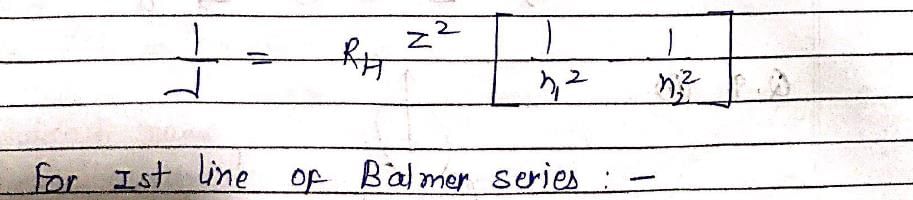 1/λ = R_H Z² [ 1/n₁² - 1/n₂² ]
For Ist line of Balmer series : -